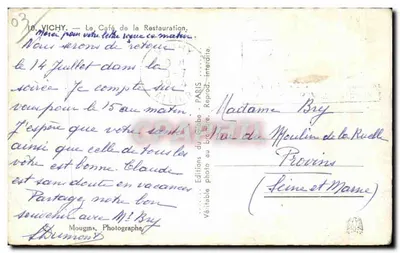 03
18 VICHY. — Le Café de la Restauration.
Merci pour votre lettre reçue ce matin.
Nous serons de retour
le 14 Juillet dans la
soirée. Je compte sur
vous pour le 15 au matin.
J'espère que votre santé
ainsi que celle de tous les
vôtre est bonne. Claude
est sans doute en vacances
Partagez notre bon
souvenir avec Mr Bry
SDumont
Mougins, Photographe
Editions
PARIS
Véritable photo au bromure. Reprod. interdite.
Madame Bry
Rue du Moulin de la Ruelle
Provins
(Seine et Marne)